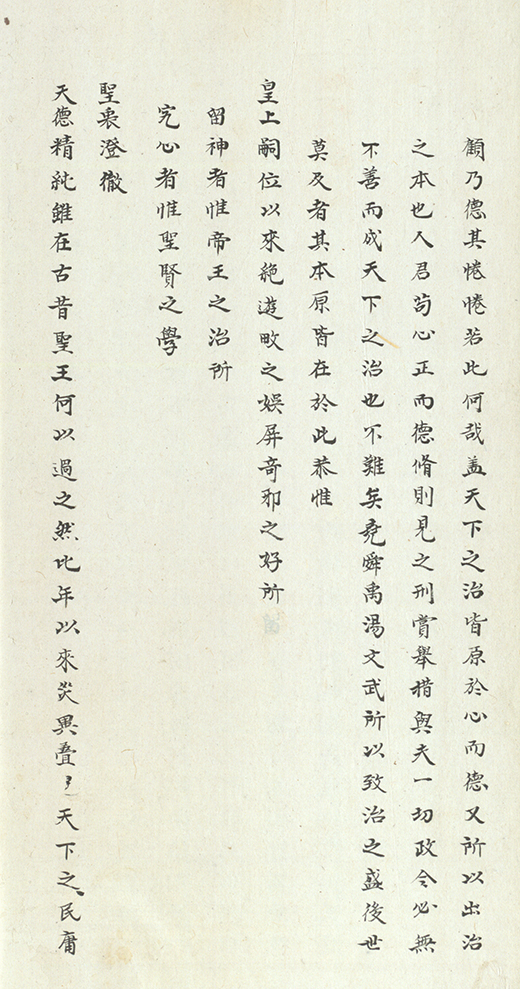 顧乃德其惓惓若此何哉盖天下之治皆原於心而德又所以出治
之本也人君苟心正而德脩則見之刑賞舉措與夫一切政令必無
不善而成天下之治也不難矣堯舜禹湯文武所以致治之盛後世
莫及者其本原皆在於此恭惟
皇上嗣位以來絶遊畋之娛屏奇邪之好所
留神者惟帝王之治所
究心者惟聖賢之學
聖衷澄徹
天德精純雖在古昔聖王何以過之然比年以來災異疊〻天下之民庸